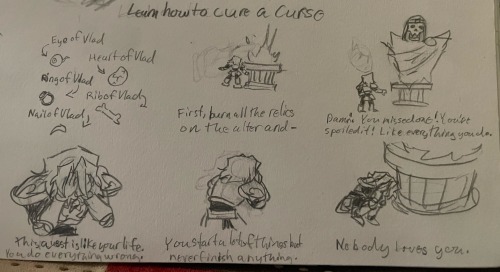 Learn how to cure a curse
Eye of Vlad
Heart of Vlad
Ring of Vlad
Rib of Vlad
Nail of Vlad
First, burn all the relics
on the alter and-
Damn! You missed one! You've
spoiled it! Like everything you do.
This quest is like your life.
You do everything wrong.
You start a lot of things but
never finish anything.
Nobody loves you.